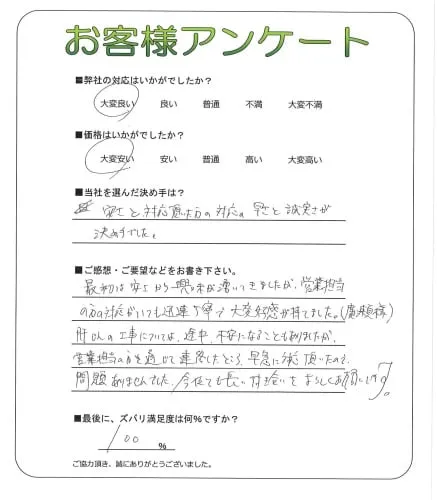 お客様アンケート
■弊社の対応はいかがでしたか?
大変良い 良い 普通 不満 大変不満
■価格はいかがでしたか?
大変安い 安い 普通 高い 大変高い
■当社を選んだ決め手は?
安さと対応頂いた方の対応の早さと誠実さが
決め手でした。
■ご感想・ご要望などをお書き下さい。
最初は安さから興味が湧いてきましたが、営業担当
の方の対応がいつも迅速丁寧で大変好感が持てました。(廣瀬様)
肝心の工事については、途中、不安になることもありましたが、
営業担当の方を通じて連絡したところ、早急に対応頂いたので、
問題ありませんでした。今後とも長いお付き合いをよろしくお願いします。
■最後に、ズバリ満足度は何%ですか?
100 %
ご協力頂き、誠にありがとうございました。